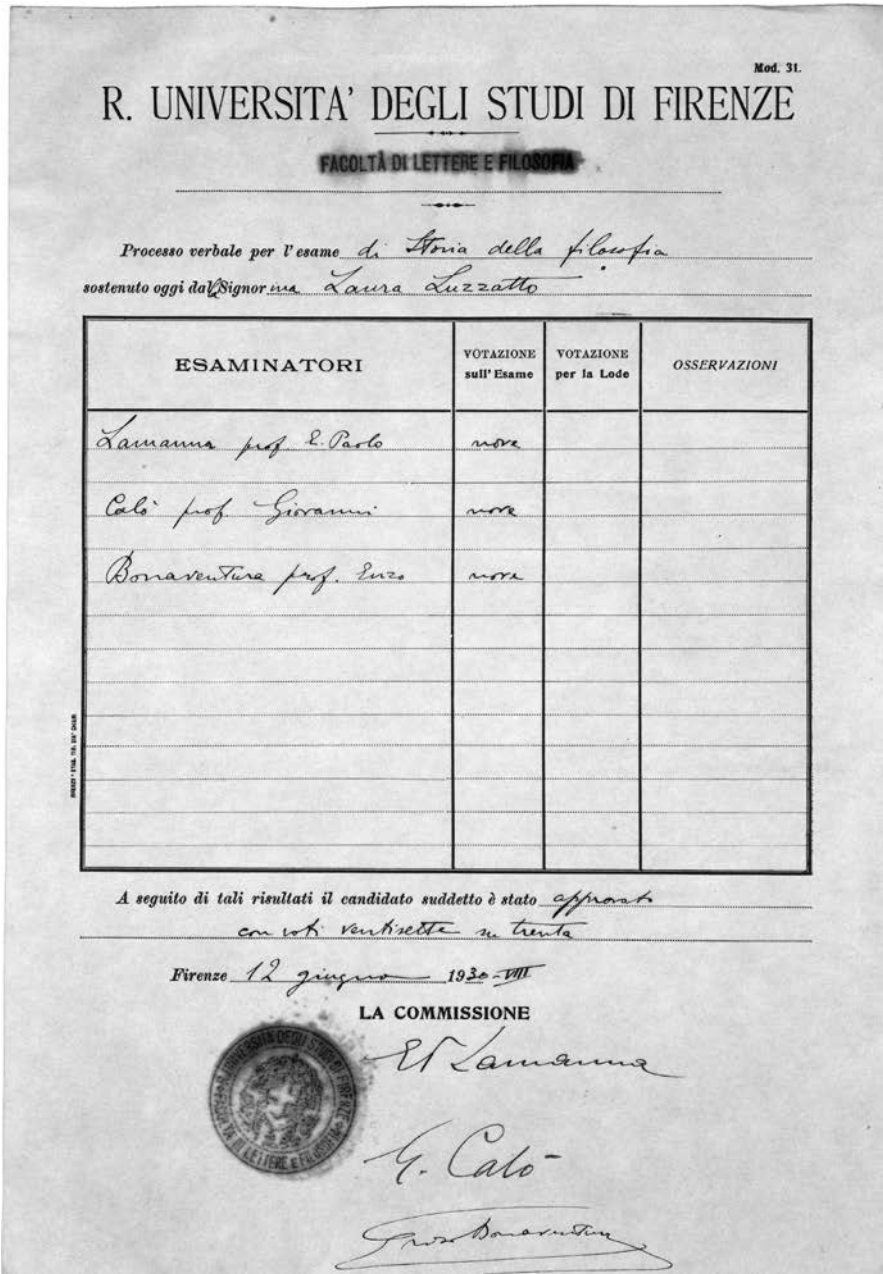 Mod. 31.
R. UNIVERSITA' DEGLI STUDI DI FIRENZE
FACOLTÀ DI LETTERE E FILOSOFIA
Processo verbale per l'esame di Storia della filosofia
sostenuto oggi dalla Signorina Laura Luzzatto
ESAMINATORI VOTAZIONE sull'Esame VOTAZIONE per la Lode OSSERVAZIONI
Lamanna prof. E. Paolo nove
Calò prof. Giovanni nove
Bonaventura prof. Enzo nove
A seguito di tali risultati il candidato suddetto è stato approvato
con voti ventisette su trenta
Firenze 12 giugno 1930-VIII
LA COMMISSIONE
EP Lamanna
R. UNIVERSITÀ DEGLI STUDI DI FIRENZE
FACOLTÀ DI LETTERE E FILOSOFIA
G. Calò
Enzo Bonaventura